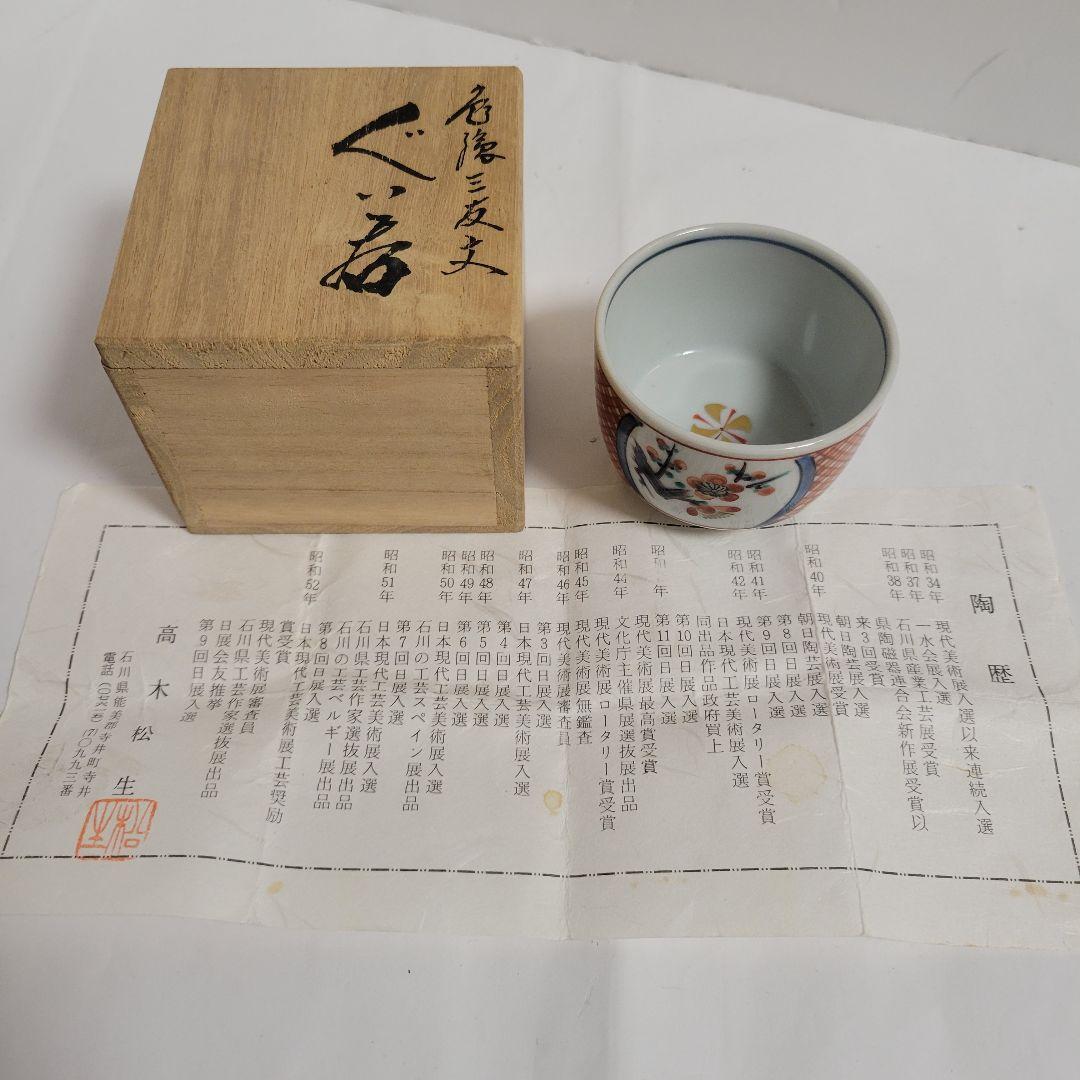 色絵三友文
ぐい呑
陶歴
昭和34年
現代美術展入選以来連続入選
昭和37年
一水会展入選
石川県産業工芸展受賞
昭和38年
県陶磁器連合会新作展受賞以
来3回受賞
朝日陶芸展入選
昭和40年
現代美術展受賞
朝日陶芸展入選
第8回日展入選
昭和41年
第9回日展入選
昭和42年
現代美術展ロータリー賞受賞
日本現代工芸美術展入選
同出品作品政府買上
第10回日展入選
昭和 年
第11回日展入選
現代美術展最高賞受賞
昭和44年
文化庁主催県展選抜展出品
現代美術展ロータリー賞受賞
昭和45年
現代美術展無鑑査
昭和46年
現代美術展審査員
第3回日展入選
昭和47年
日本現代工芸美術展入選
第4回日展入選
昭和48年
第5回日展入選
昭和49年
第6回日展入選
昭和50年
日本現代工芸美術展入選
石川の工芸スペイン展出品
第7回日展入選
昭和51年
日本現代工芸美術展入選
石川県工芸作家選抜展出品
石川の工芸ベルギー展出品
第8回日展入選
昭和52年
日本現代工芸美術展工芸奨励
賞受賞
現代美術展審査員
石川県工芸作家選抜展出品
日展会友推挙
第9回日展入選
高木松生
石川県能美郡寺井町寺井
松生